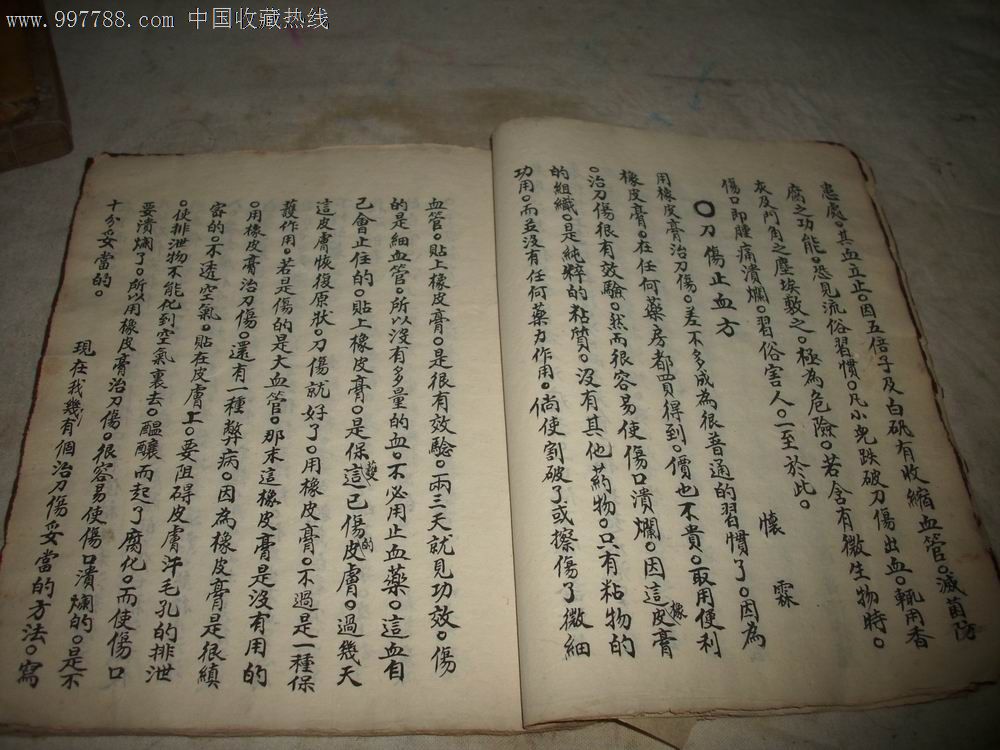 www.997788.com 中国收藏热线
患處。其血立止。因五倍子及白矾有收縮血管。滅菌防
腐之功能。恐見流俗習慣。凡小兒跌破刀傷出血。輒用香
灰及門角之塵埃敷之。極為危險。若含有微生物時。
傷口即腫痛潰爛。習俗害人。一至於此。 懷霖
〇刀傷止血方
用橡皮膏治刀傷。差不多成為很普通的習慣了。因為
橡皮膏。在任何藥房都買得到。價也不貴。取用便利
。治刀傷很有效驗。然而很容易使傷口潰爛。因這橡皮膏
的組織。是純粹的粘質。沒有其他药物。只有粘物的
功用。而並沒有任何藥力作用。倘使割破了或擦傷了微細
血管。貼上橡皮膏。是很有效驗。兩三天就見功效。傷
的是細血管。所以沒有多量的血。不必用止血藥。這血自
己會止住的。貼上橡皮膏。是保護這已傷的皮膚。過幾天
這皮膚恢復原狀。刀傷就好了。用橡皮膏。不過是一種保
護作用。若是傷的是大血管。那末這橡皮膏是沒有用的
。用橡皮膏治刀傷。還有一種弊病。因為橡皮膏是很縝
密的。不透空氣。貼在皮膚上。要阻碍皮膚汗毛孔的排泄
。使排泄物不能化到空氣裏去。醞釀而起了腐化。而使傷口
要潰爛了。所以用橡皮膏治刀傷。很容易使傷口潰爛的。是不
十分妥當的。
現在我幾有個治刀傷妥當的方法。寫